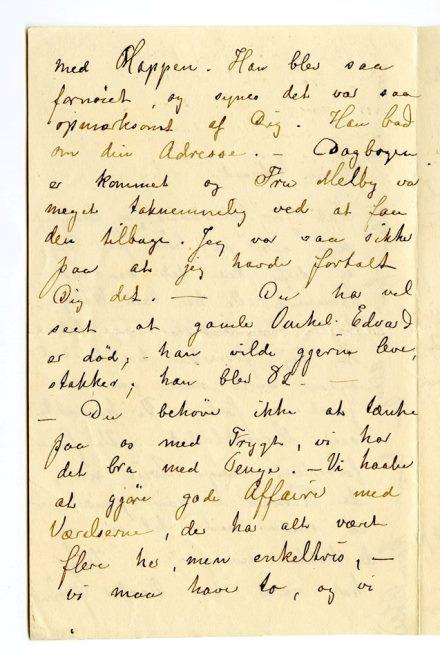 med Mappen. Han blev saa
fornøiet, og synes det var saa
opmærksomt af Dig. Han bad
om din Adresse. — Dagbogen
er kommet og Fru Melby var
meget taknemmelig ved at faa
den tilbage. Jeg var saa sikker
paa at jeg havde fortalt
Dig det. — Du har vel
seet at gamle Onkel Edvard
er død; han vilde gjerne leve,
stakker; han blev 82. —
— Du behøver ikke at tænke
paa os med Frygt, vi har
det bra med Penge. — Vi haaber
at gjøre gode Affairer med
Værelserne, der har alt været
flere her, men enkeltvis, —
vi maa have to, og vi